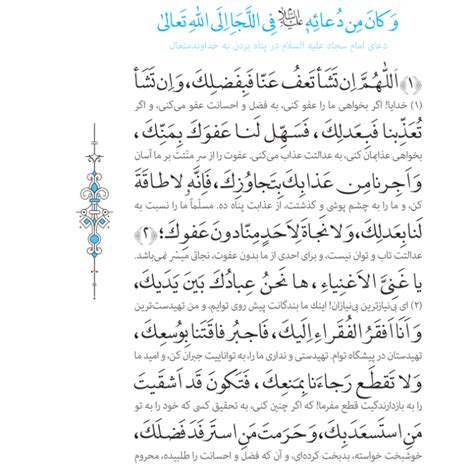 وَ كَانَ مِن دُعائِهِ عليه‌السلام فِي اللَّجَاِ إِلَى اللهِ تَعالىٰ
دعای امام سجاد علیه السلام در پناه بردن به خداوندمتعال
﴿۱﴾ اَللّٰهُمَّ اِن تَشَأ تَعفُ عَنّا فَبِفَضلِكَ، وَ اِن تَشَأ
(۱) خدایا! اگر بخواهی ما را عفو کنی، به فضل و احسانت عفو می‌کنی، و اگر
تُعَذِّبنا فَبِعَدلِكَ، فَسَهِّل لَنا عَفوَكَ بِمَنِّكَ،
بخواهی عذابمان کنی، به عدالتت عذاب می‌کنی. عفوت را از سر منّتت بر ما آسان
وَ اَجِرنا مِن عَذابِكَ بِتَجاوُزِكَ، فَاِنَّهُ لا طاقَةَ
کن، و ما را به چشم پوشی و گذشتت، از عذابت پناه ده. مسلّماً ما را نسبت به
لَنا بِعَدلِكَ، وَ لا نَجاةَ لِاَحَدٍ مِنّا دونَ عَفوِكَ؛ ﴿۲﴾
عدالتت تاب و توان نیست، و برای احدی از ما بدون عفوت، نجاتی میّسر نمی‌باشد.
يا غَنِيَّ الاَغنِياءِ، ها نَحنُ عِبادُكَ بَينَ يَدَيكَ،
(۲) ای بی‌نیازترین بی‌نیازان! اینك ما بندگانت پیش روی توایم، و من تهیدست‌ترین
وَ اَنَا اَفقَرُ الفُقَراءِ اِلَيكَ، فَاجبُر فاقَتَنا بِوُسعِكَ،
تهیدستان در پیشگاه توام. تهیدستی و نداری ما را به تواناییت جبران کن، و امید ما
وَ لا تَقطَع رَجاءَنا بِمَنعِكَ، فَتَكونَ قَد اَشقَيتَ
را به بازدارندگیت قطع مفرما! که اگر چنین کنی، به تحقیق کسی که خود را به تو
مَنِ استَسعَدَ بِكَ، وَ حَرَمتَ مَنِ استَرفَدَ فَضلَكَ،
خوشبخت خواسته، بدبخت کرده‌ای، و آن که فضل و احسانت را طلبیده، محروم